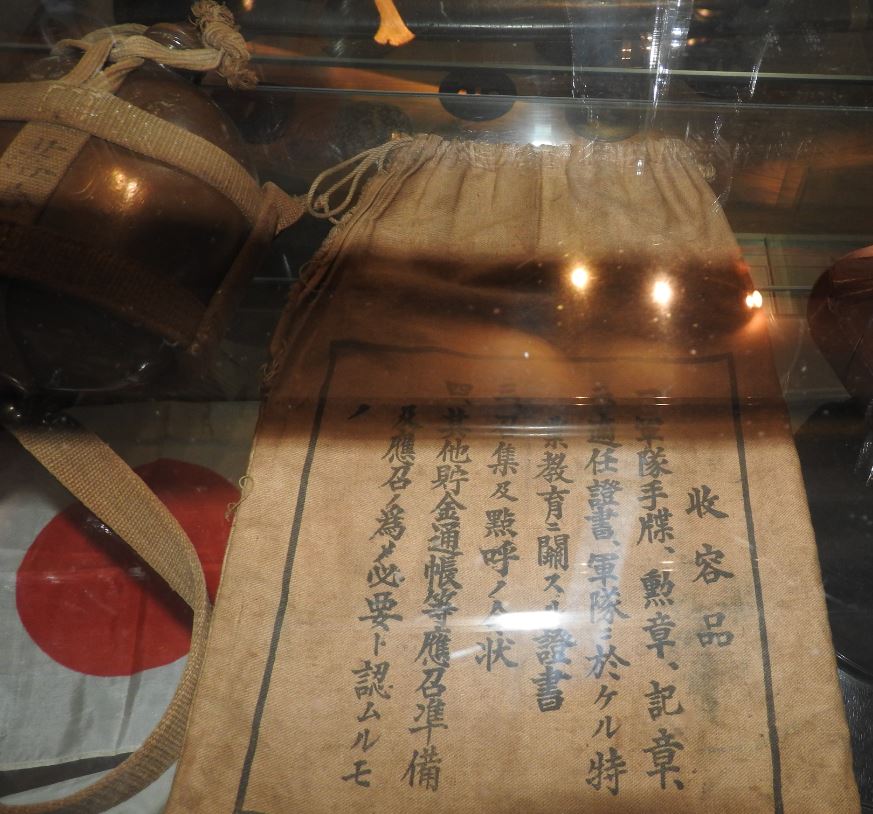 收容品
一軍隊手牒、勲章、記章、
適任證書、軍隊ニ於ケル特
業教育ニ關スル證書
三召集及點呼ノ令状
四其他貯金通帳等應召準備
及應召ノ爲メ必要ト認ムルモ
ノ